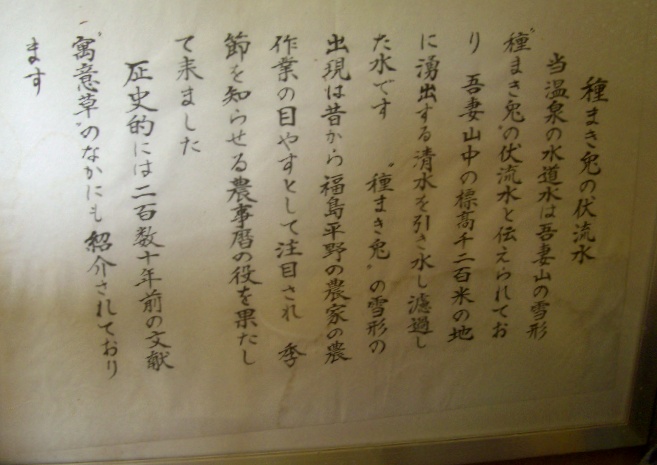 種まき兎の伏流水
当温泉の水道水は吾妻山の雪形
"種まき兎"の伏流水と伝えられてお
り 吾妻山中の標高千二百米の地
に湧出する清水を引き水し濾過し
た水です "種まき兎"の雪形の
出現は昔から福島平野の農家の農
作業の目やすとして注目され 季
節を知らせる農事暦の役を果たし
て来ました
歴史的には二百数十年前の文献
"寓意草"のなかにも紹介されており
ます